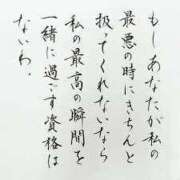 もしあなたが私の
最悪の時にきちんと
扱ってくれないなら
私の最高の瞬間を
一緒に過ごす資格は
ないわ。